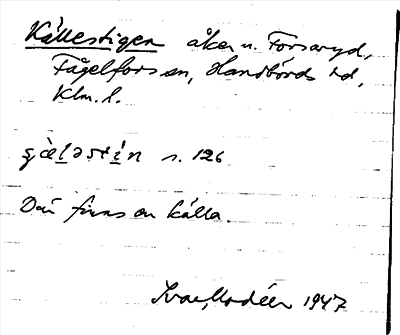 Källestigen åker u. Forsaryd,
Fågelfors sn, Handbörds hd,
Klm. l.
s. 126
Där finns en källa.
Ivar Modéer 1947